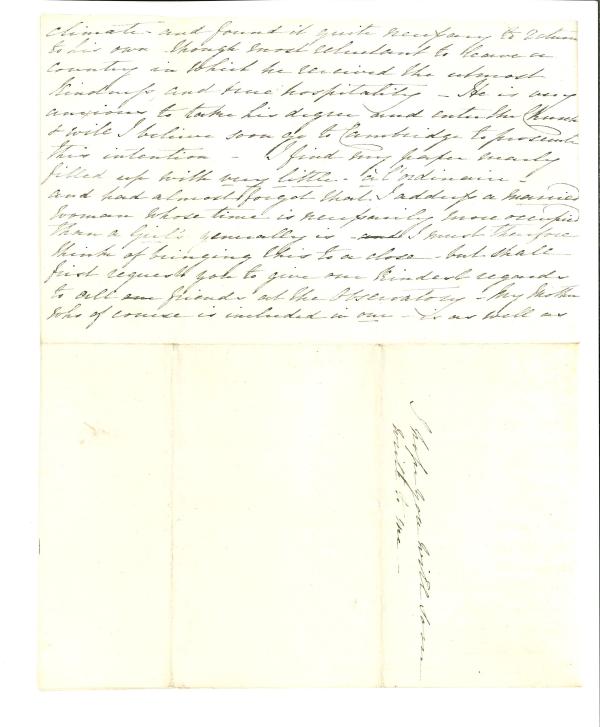 climate and found it quite necessary to return
to his own though most reluctant to leave a
country in which he received the utmost
kindness, and true hospitality - He is very
anxious to take his degree and enter the Church
& will I believe soon go to Cambridge to prosecute
this intention - I find my paper nearly
filled up with very little - à l'ordinaire -
and had almost forgot that I address a married
woman whose time is necessarily more occupied
than a Girl's generally is - and I must therefore
think of bringing this to a close - but shall
first request you to give our kindest regards
to all our friends at the Observatory - My Mother
who of course is included in our - is as well as
I hope you will soon
write to me -